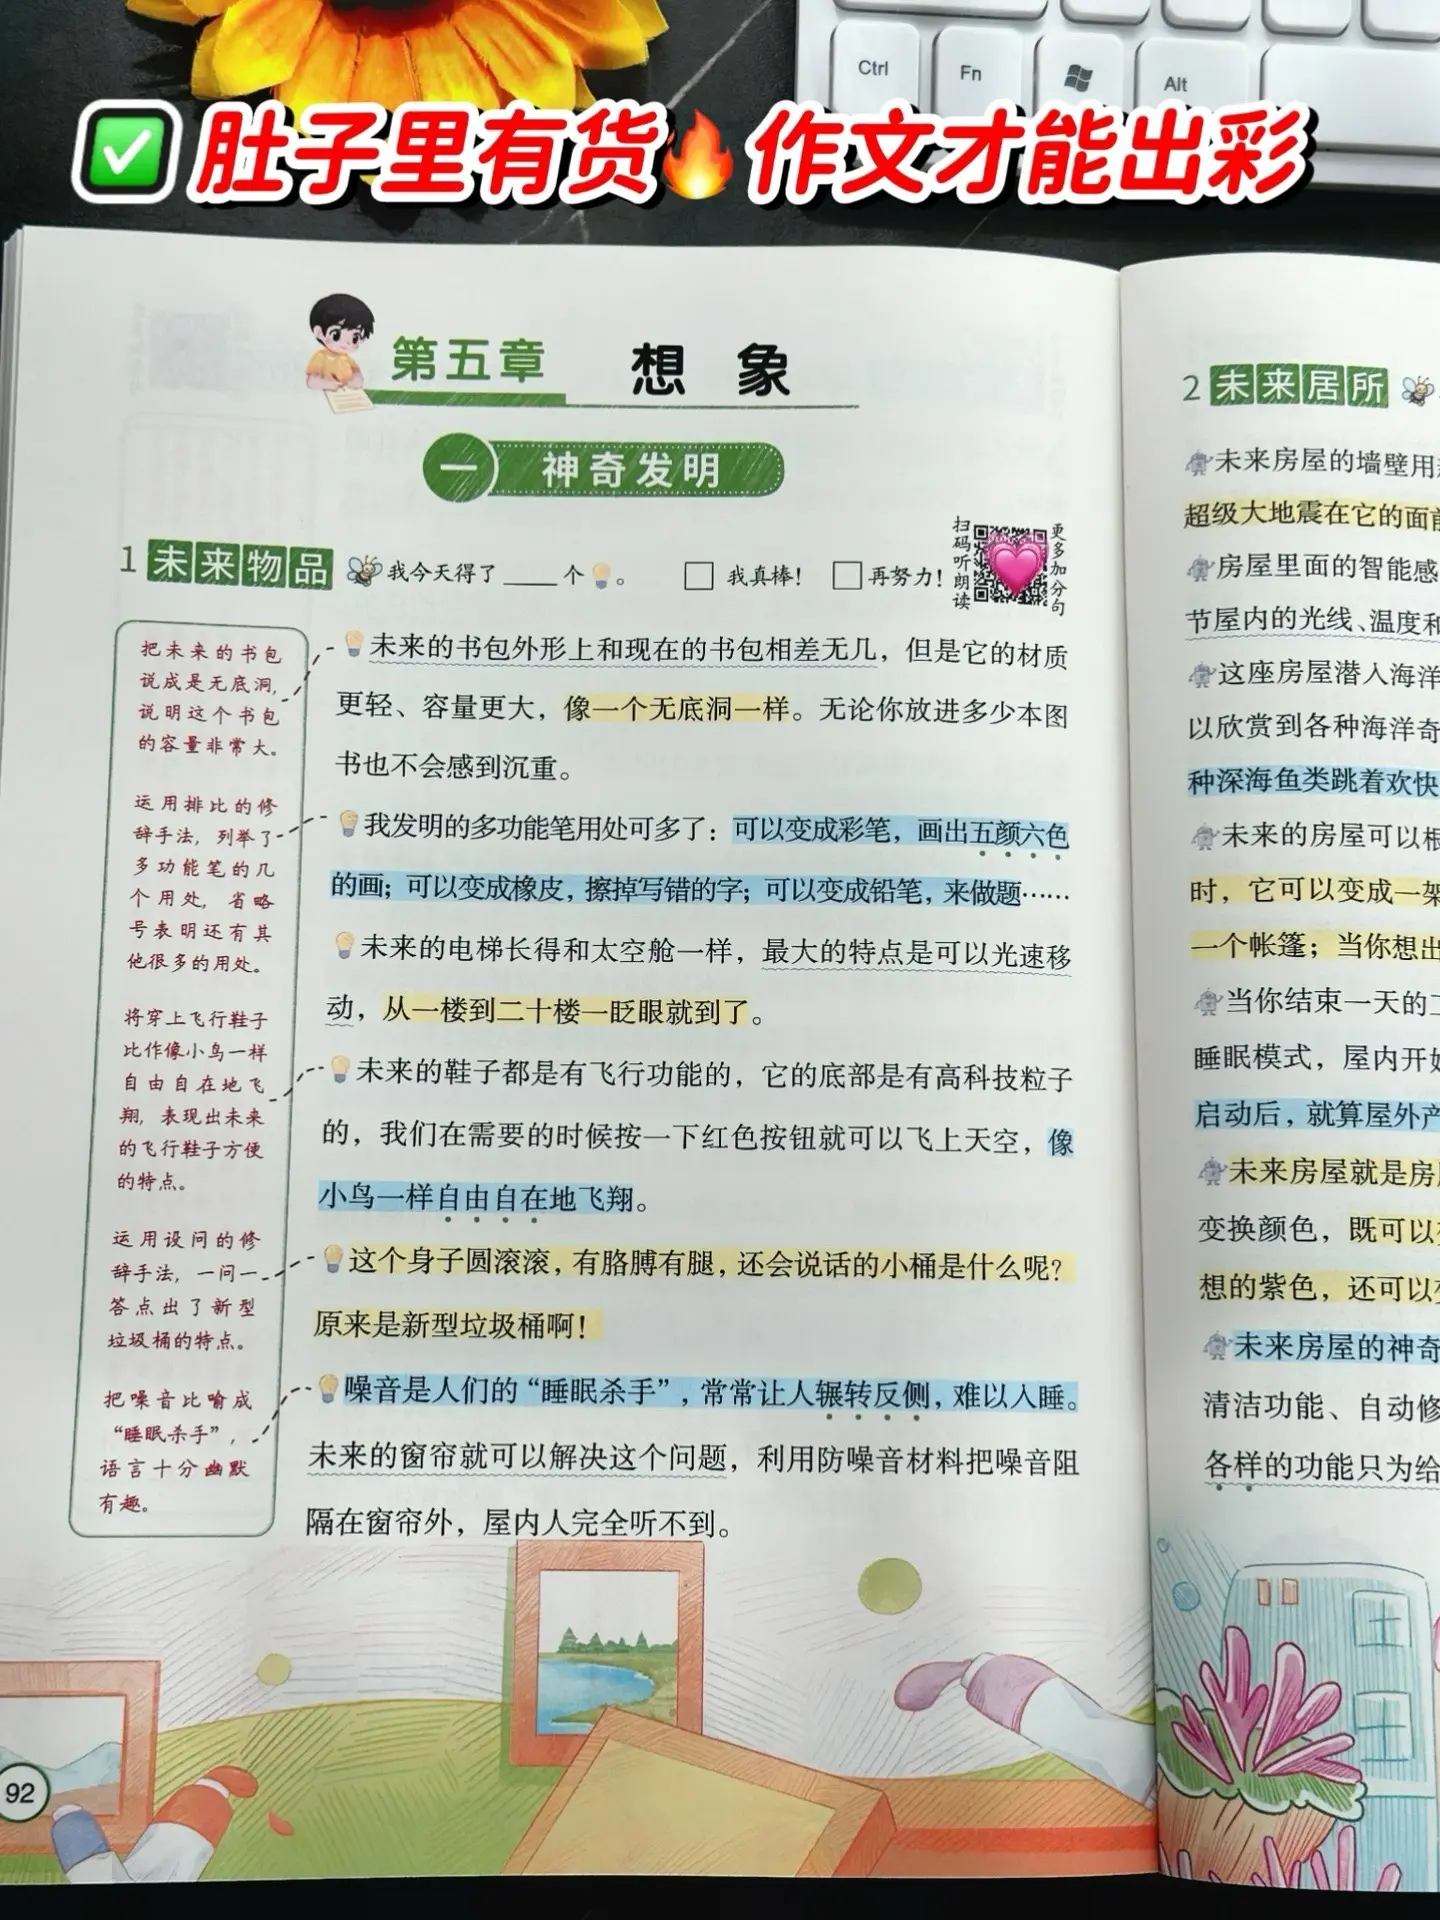 Ctrl
Fn
Alt
肚子里有货 作文才能出彩
第五章 想象
一 神奇发明
1 未来物品 我今天得了____个 。 □ 我真棒! □ 再努力!
扫码听朗读
更多加分句
把未来的书包
说成是无底洞,
说明这个书包
的容量非常大。
运用排比的修
辞手法,列举了
多功能笔的几
个用处,省略
号表明还有其
他很多的用处。
将穿上飞行鞋子
比作像小鸟一样
自由自在地飞
翔,表现出未来
的飞行鞋子方便
的特点。
运用设问的修
辞手法,一问一
答点出了新型
垃圾桶的特点。
把噪音比喻成
“睡眠杀手”,
语言十分幽默
有趣。
未来的书包外形上和现在的书包相差无几,但是它的材质
更轻、容量更大,像一个无底洞一样。无论你放进多少本图
书也不会感到沉重。
我发明的多功能笔用处可多了:可以变成彩笔,画出五颜六色
的画;可以变成橡皮,擦掉写错的字;可以变成铅笔,来做题……
未来的电梯长得和太空舱一样,最大的特点是可以光速移
动,从一楼到二十楼一眨眼就到了。
未来的鞋子都是有飞行功能的,它的底部是有高科技粒子
的,我们在需要的时候按一下红色按钮就可以飞上天空,像
小鸟一样自由自在地飞翔。
这个身子圆滚滚,有胳膊有腿,还会说话的小桶是什么呢?
原来是新型垃圾桶啊!
噪音是人们的“睡眠杀手”,常常让人辗转反侧,难以入睡。
未来的窗帘就可以解决这个问题,利用防噪音材料把噪音阻
隔在窗帘外,屋内人完全听不到。
92
2 未来居所
未来房屋的墙壁用
超级大地震在它的面前
房屋里面的智能感
节屋内的光线、温度和
这座房屋潜入海洋
以欣赏到各种海洋奇
种深海鱼类跳着欢快
未来的房屋可以根
时,它可以变成一架
一个帐篷;当你想出
当你结束一天的
睡眠模式,屋内开始
启动后,就算屋外产
未来房屋就是房
变换颜色,既可以
想的紫色,还可以
未来房屋的神奇
清洁功能、自动修
各样的功能只为给